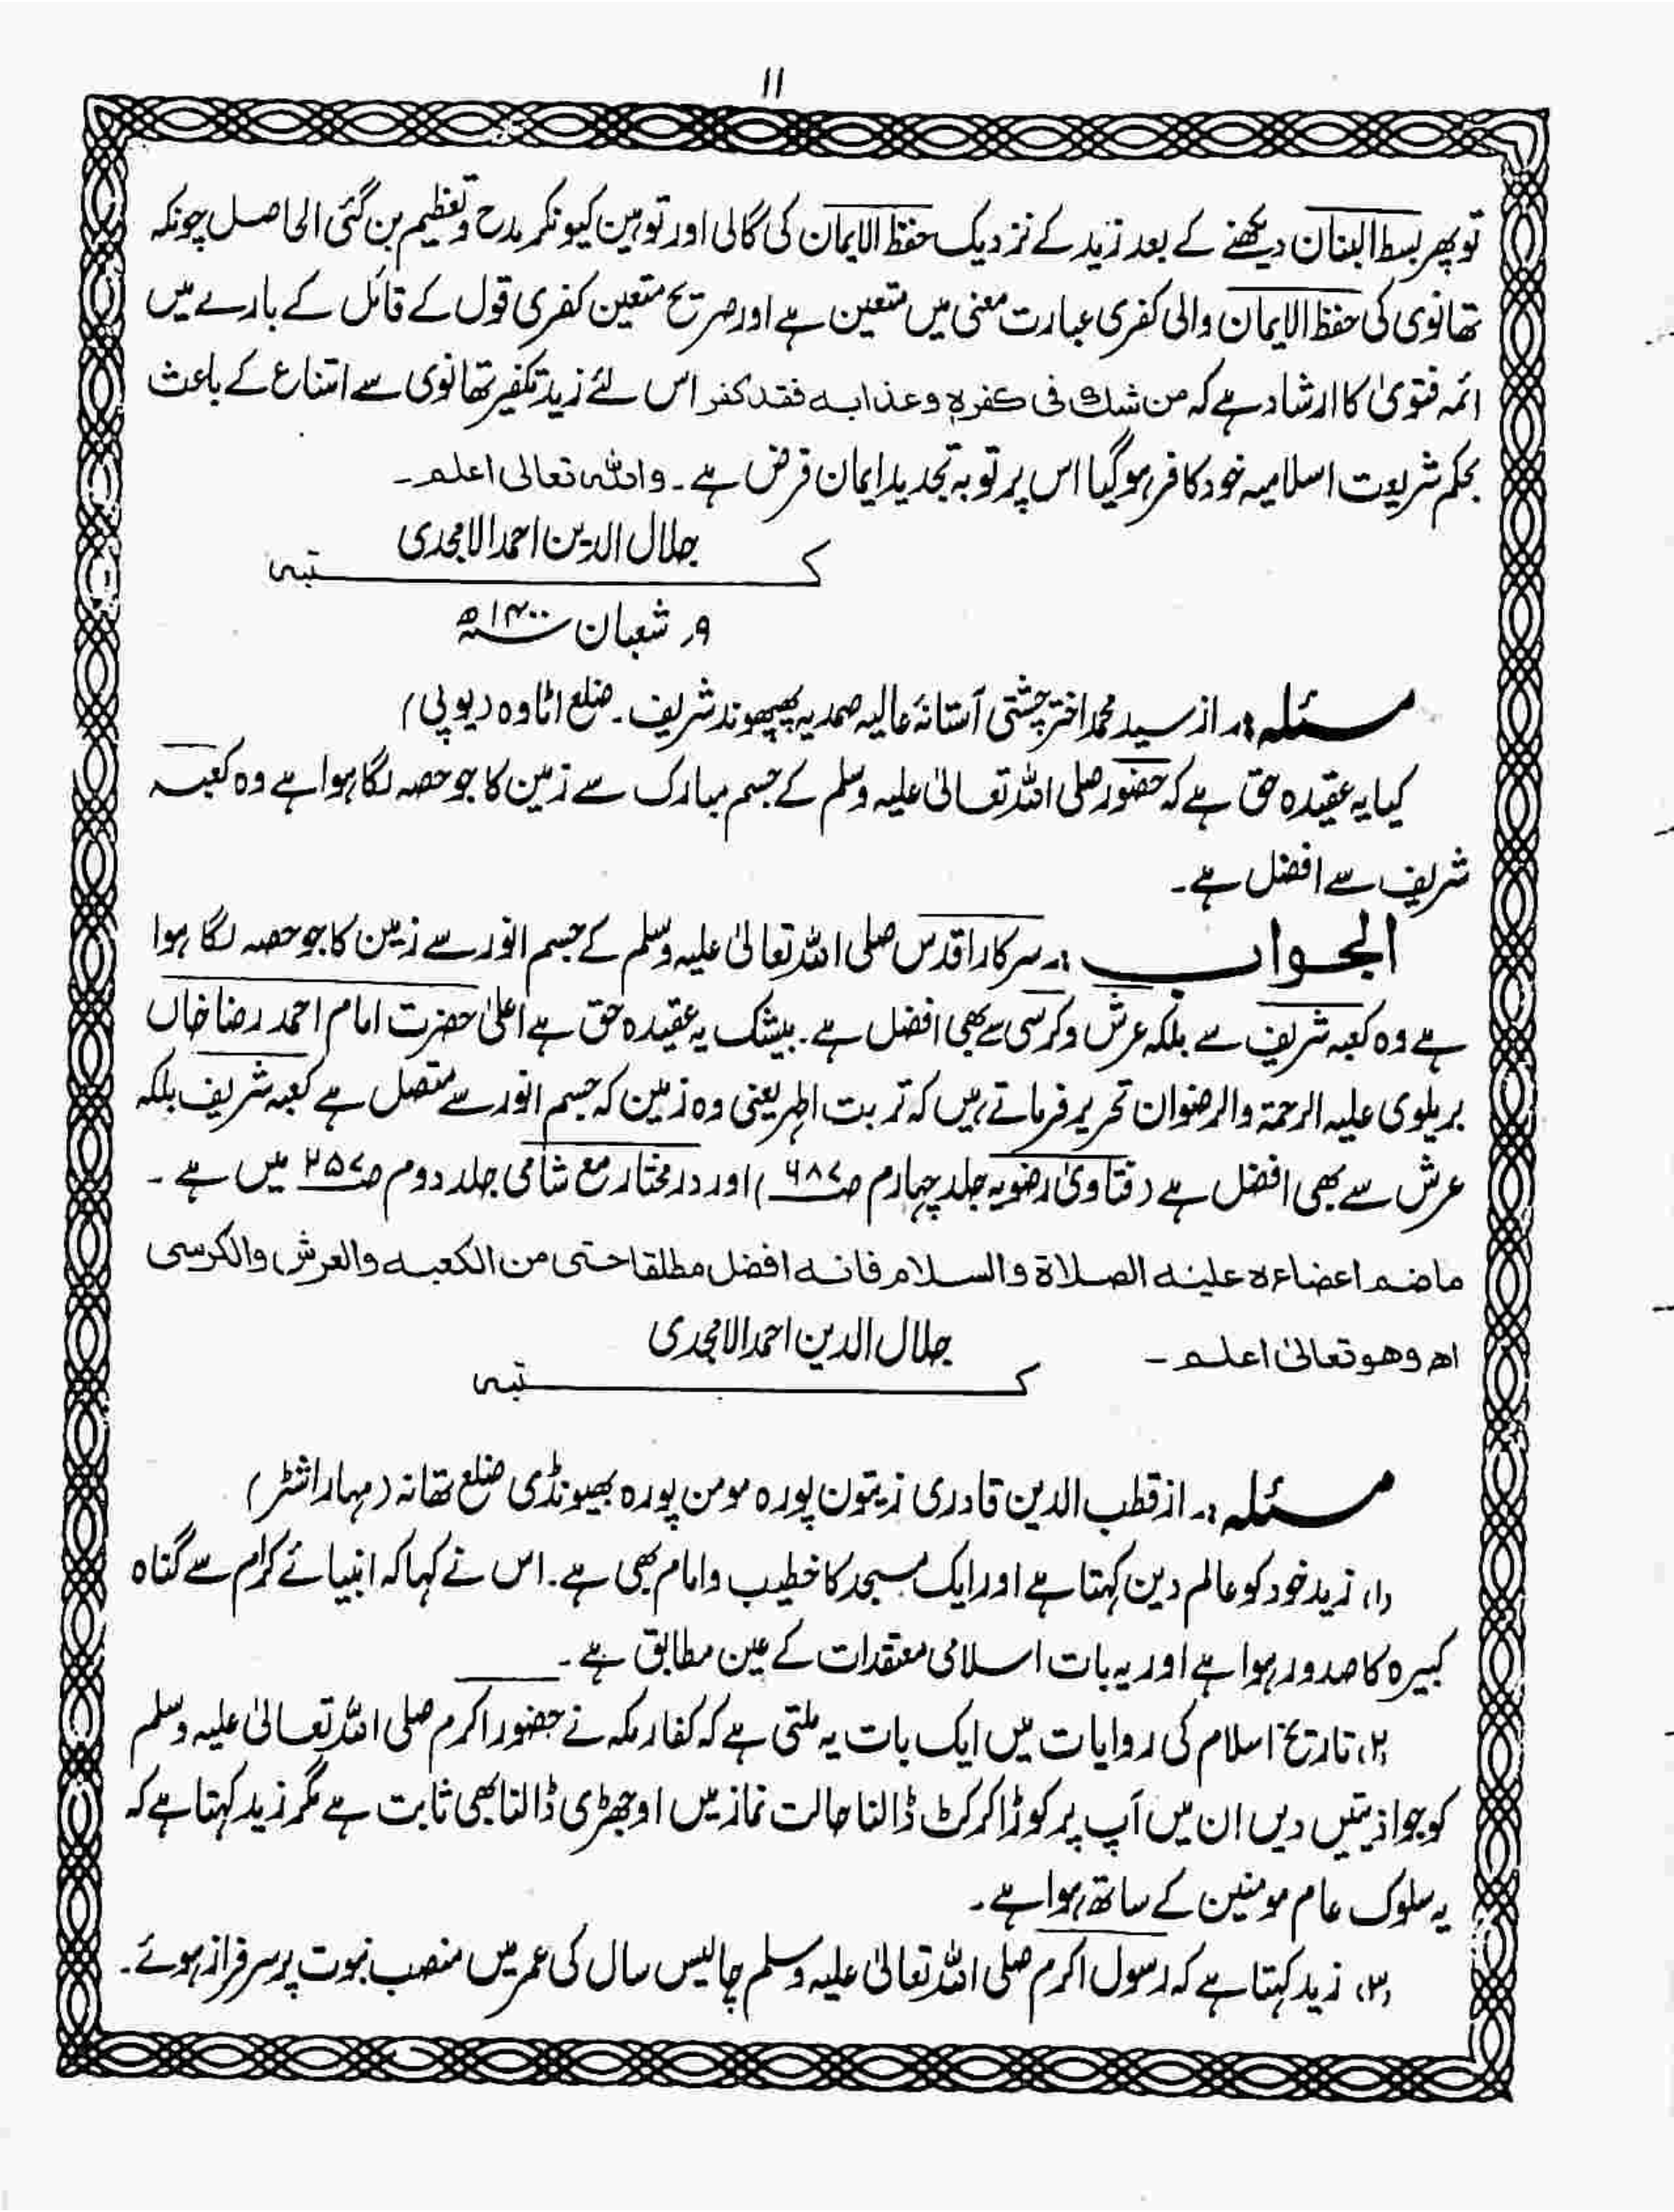 ۱۱
تو پھر بسط البنان دیکھنے کے بعد زید کے نزدیک حفظ الایمان کی گالی اور توہین کیونکر مدح و تعظیم بن گئی الحاصل چونکہ
تھانوی کی حفظ الایمان والی کفری عبارت معنی میں متعین ہے اور صریح متعین کفری قول کے قائل کے بارے میں
ائمہ فتویٰ کا ارشاد ہے کہ من شک فی کفرہ وعذابہ فقد کفر اس لئے زید تکفیر تھانوی سے امتناع کے باعث
بحکم شریعت اسلامیہ خود کافر ہوگیا اس پر توبہ تجدید ایمان فرض ہے۔ واللہ تعالی اعلم۔
جلال الدین احمد الامجدی
کتبہ
۹؍ شعبان ۱۴۰۰ھ
مسئلہ:۔ از سید محمد اختر چشتی آستانۂ عالیہ صمدیہ پھپھوند شریف۔ ضلع اٹاوہ (یوپی)
کیا یہ عقیدہ حق ہے کہ حضور صلی اللہ تعالیٰ علیہ وسلم کے جسم مبارک سے زمین کا جو حصہ لگا ہوا ہے وہ کعبہ
شریف سے افضل ہے۔
الجواب:۔ سرکار اقدس صلی اللہ تعالیٰ علیہ وسلم کے جسم انور سے زمین کا جو حصہ لگا ہوا
ہے وہ کعبہ شریف سے بلکہ عرش و کرسی سے بھی افضل ہے۔ بیشک یہ عقیدہ حق ہے اعلیٰ حضرت امام احمد رضا خاں
بریلوی علیہ الرحمۃ والرضوان تحریر فرماتے ہیں کہ تربت اطہر یعنی وہ زمین کہ جسم انور سے متصل ہے کعبہ شریف بلکہ
عرش سے بھی افضل ہے (فتاویٰ رضویہ جلد چہارم ص۶۸۷) اور درمختار مع شامی جلد دوم ص۲۵۷ میں ہے۔
ماضم اعضاءہ علیہ الصلاۃ والسلام فانہ افضل مطلقا حتی من الکعبہ والعرش والکرسی
اھ وھو تعالیٰ اعلم۔
جلال الدین احمد الامجدی
کتبہ
مسئلہ:۔ از قطب الدین قادری زیتون پورہ مومن پورہ بھیونڈی ضلع تھانہ (مہاراشٹر)
(۱) زید خود کو عالم دین کہتا ہے اور ایک مسجد کا خطیب و امام بھی ہے۔ اس نے کہا کہ انبیائے کرام سے گناہ
کبیرہ کا صدور ہوا ہے اور یہ بات اسلامی معتقدات کے عین مطابق ہے۔
(۲) تاریخ اسلام کی روایات میں ایک بات یہ ملتی ہے کہ کفار مکہ نے حضور اکرم صلی اللہ تعالیٰ علیہ وسلم
کو جو اذیتیں دیں ان میں آپ پر کوڑا کرکٹ ڈالنا حالت نماز میں اوجھڑی ڈالنا بھی ثابت ہے مگر زید کہتا ہے کہ
یہ سلوک عام مومنین کے ساتھ ہوا ہے۔
(۳) زید کہتا ہے کہ رسول اکرم صلی اللہ تعالیٰ علیہ وسلم چالیس سال کی عمر میں منصب نبوت پر سرفراز ہوئے۔